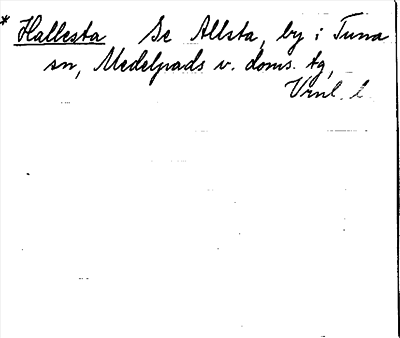 * Hallesta Se Allsta, by i Tuna
sn, Medelpads v. doms. tg,
Vrnl. l.